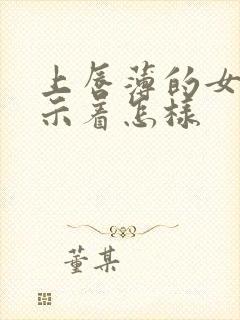 上唇薄的女
示着怎样
董某